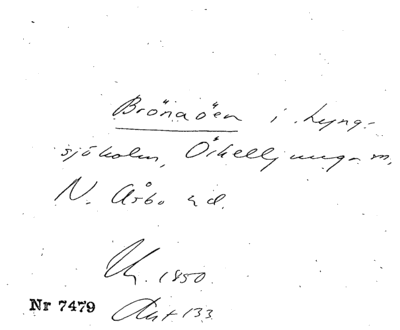 Brönaöen i Lyng-
sjöholm, Örkelljunga m,
N. Åsbo hd.
1850
Nr 7479 133